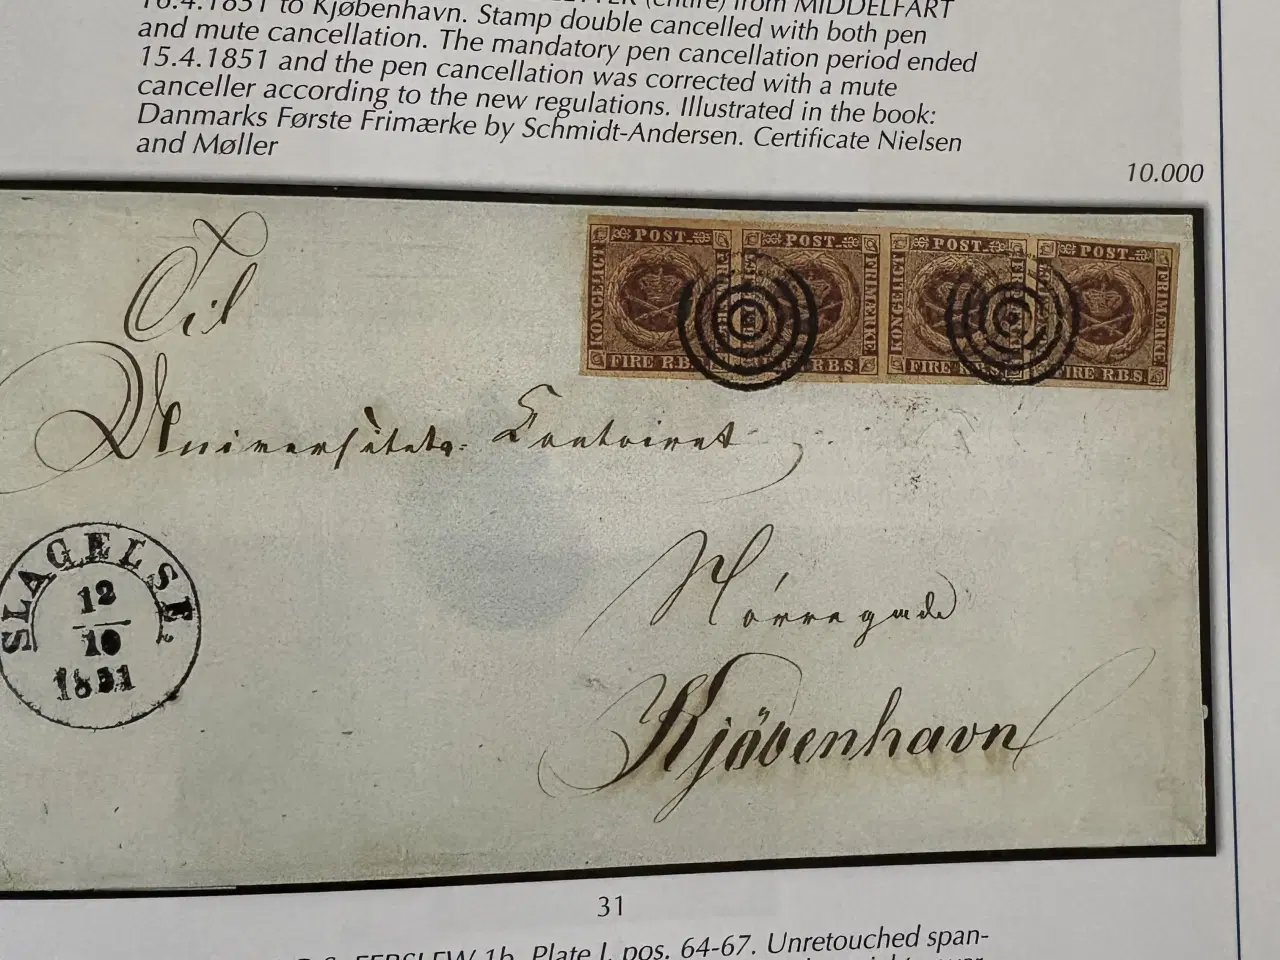 16.4.1851 to Kjøbenhavn. Stamp double cancelled with both pen
and mute cancellation. The mandatory pen cancellation period ended
15.4.1851 and the pen cancellation was corrected with a mute
canceller according to the new regulations. Illustrated in the book:
Danmarks Første Frimærke by Schmidt-Andersen. Certificate Nielsen
and Møller
10.000
Til
Universitets-Contoiret
Nørregade
Kjöbenhavn
KONGELIGT POST FRIMÆRKE FIRE R.B.S.
KONGELIGT POST FRIMÆRKE FIRE R.B.S.
KONGELIGT POST FRIMÆRKE FIRE R.B.S.
KONGELIGT POST FRIMÆRKE FIRE R.B.S.
SLAGELSE
12
10
1851
31
FERSLEW 1b, Plate I, pos. 64-67. Unretouched span-